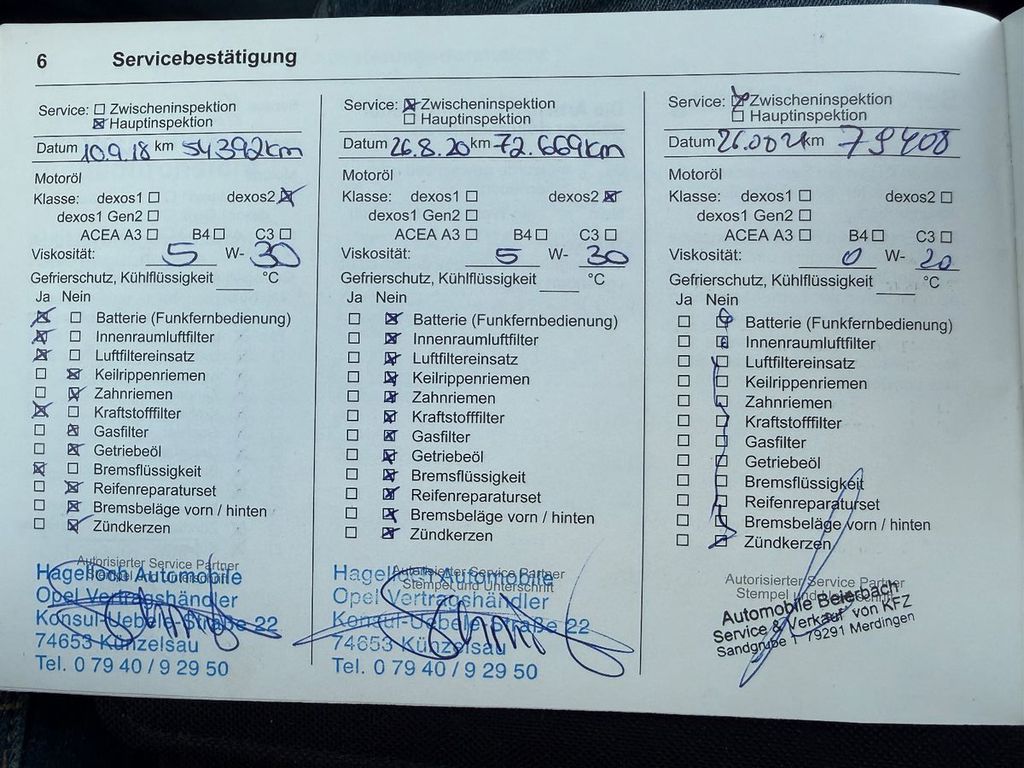 6 Servicebestätigung
Service: ☐ Zwischeninspektion
☒ Hauptinspektion
Datum 10.9.18 km 54392km
Motoröl
Klasse: dexos1 ☐ dexos2 ☒
dexos1 Gen2 ☐
ACEA A3 ☐ B4 ☐ C3 ☐
Viskosität: 5 W- 30
Gefrierschutz, Kühlflüssigkeit ____ °C
Ja Nein
☒ ☐ Batterie (Funkfernbedienung)
☒ ☐ Innenraumluftfilter
☒ ☐ Luftfiltereinsatz
☐ ☒ Keilrippenriemen
☐ ☒ Zahnriemen
☒ ☐ Kraftstofffilter
☐ ☒ Gasfilter
☐ ☒ Getriebeöl
☒ ☐ Bremsflüssigkeit
☐ ☒ Reifenreparaturset
☐ ☒ Bremsbeläge vorn / hinten
☐ ☒ Zündkerzen
Autorisierter Service Partner
Hagelloch Automobile
Opel Vertragshändler
Konsul-Uebele-Straße 22
74653 Künzelsau
Tel. 0 79 40 / 9 29 50
Service: ☒ Zwischeninspektion
☐ Hauptinspektion
Datum 26.8.20 km 72.669km
Motoröl
Klasse: dexos1 ☐ dexos2 ☒
dexos1 Gen2 ☐
ACEA A3 ☐ B4 ☐ C3 ☐
Viskosität: 5 W- 30
Gefrierschutz, Kühlflüssigkeit ____ °C
Ja Nein
☐ ☒ Batterie (Funkfernbedienung)
☐ ☒ Innenraumluftfilter
☐ ☒ Luftfiltereinsatz
☐ ☒ Keilrippenriemen
☐ ☒ Zahnriemen
☐ ☒ Kraftstofffilter
☐ ☒ Gasfilter
☐ ☒ Getriebeöl
☐ ☒ Bremsflüssigkeit
☐ ☒ Reifenreparaturset
☐ ☒ Bremsbeläge vorn / hinten
☐ ☒ Zündkerzen
Autorisierter Service Partner
Stempel und Unterschrift
Hagelloch Automobile
Opel Vertragshändler
Konsul-Uebele-Straße 22
74653 Künzelsau
Tel. 0 79 40 / 9 29 50
Service: ☒ Zwischeninspektion
☐ Hauptinspektion
Datum km 79408
Motoröl
Klasse: dexos1 ☐ dexos2 ☐
dexos1 Gen2 ☐
ACEA A3 ☐ B4 ☐ C3 ☐
Viskosität: 0 W- 20
Gefrierschutz, Kühlflüssigkeit ____ °C
Ja Nein
☐ ☒ Batterie (Funkfernbedienung)
☐ ☒ Innenraumluftfilter
☐ ☒ Luftfiltereinsatz
☐ ☒ Keilrippenriemen
☐ ☒ Zahnriemen
☐ ☒ Kraftstofffilter
☐ ☒ Gasfilter
☐ ☒ Getriebeöl
☐ ☒ Bremsflüssigkeit
☐ ☒ Reifenreparaturset
☐ ☒ Bremsbeläge vorn / hinten
☐ ☒ Zündkerzen
Autorisierter Service Partner
Stempel
Automobile Beierbach
Service & Verkauf von KFZ
Sandgrube 1 79291 Merdingen